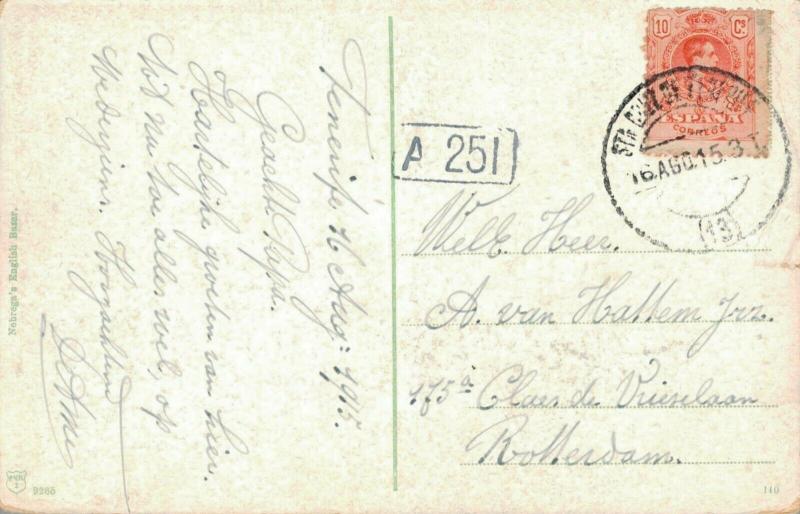 Tenerife 16 Aug: 1915.
Geachte Papa.
Hartelijke groeten van hier.
Tot nu toe alles wel, op
wederziens. Hoogachtend
Nobrega's English Bazar.
9265
10 Cs
ESPAÑA
CORREOS
STA CRUZ DE
16 AGO.15.3T
(13)
A 251
WelE. Heer.
A. van Hattem Jrz.
175a Claes de Vrieselaan
Rotterdam.
110